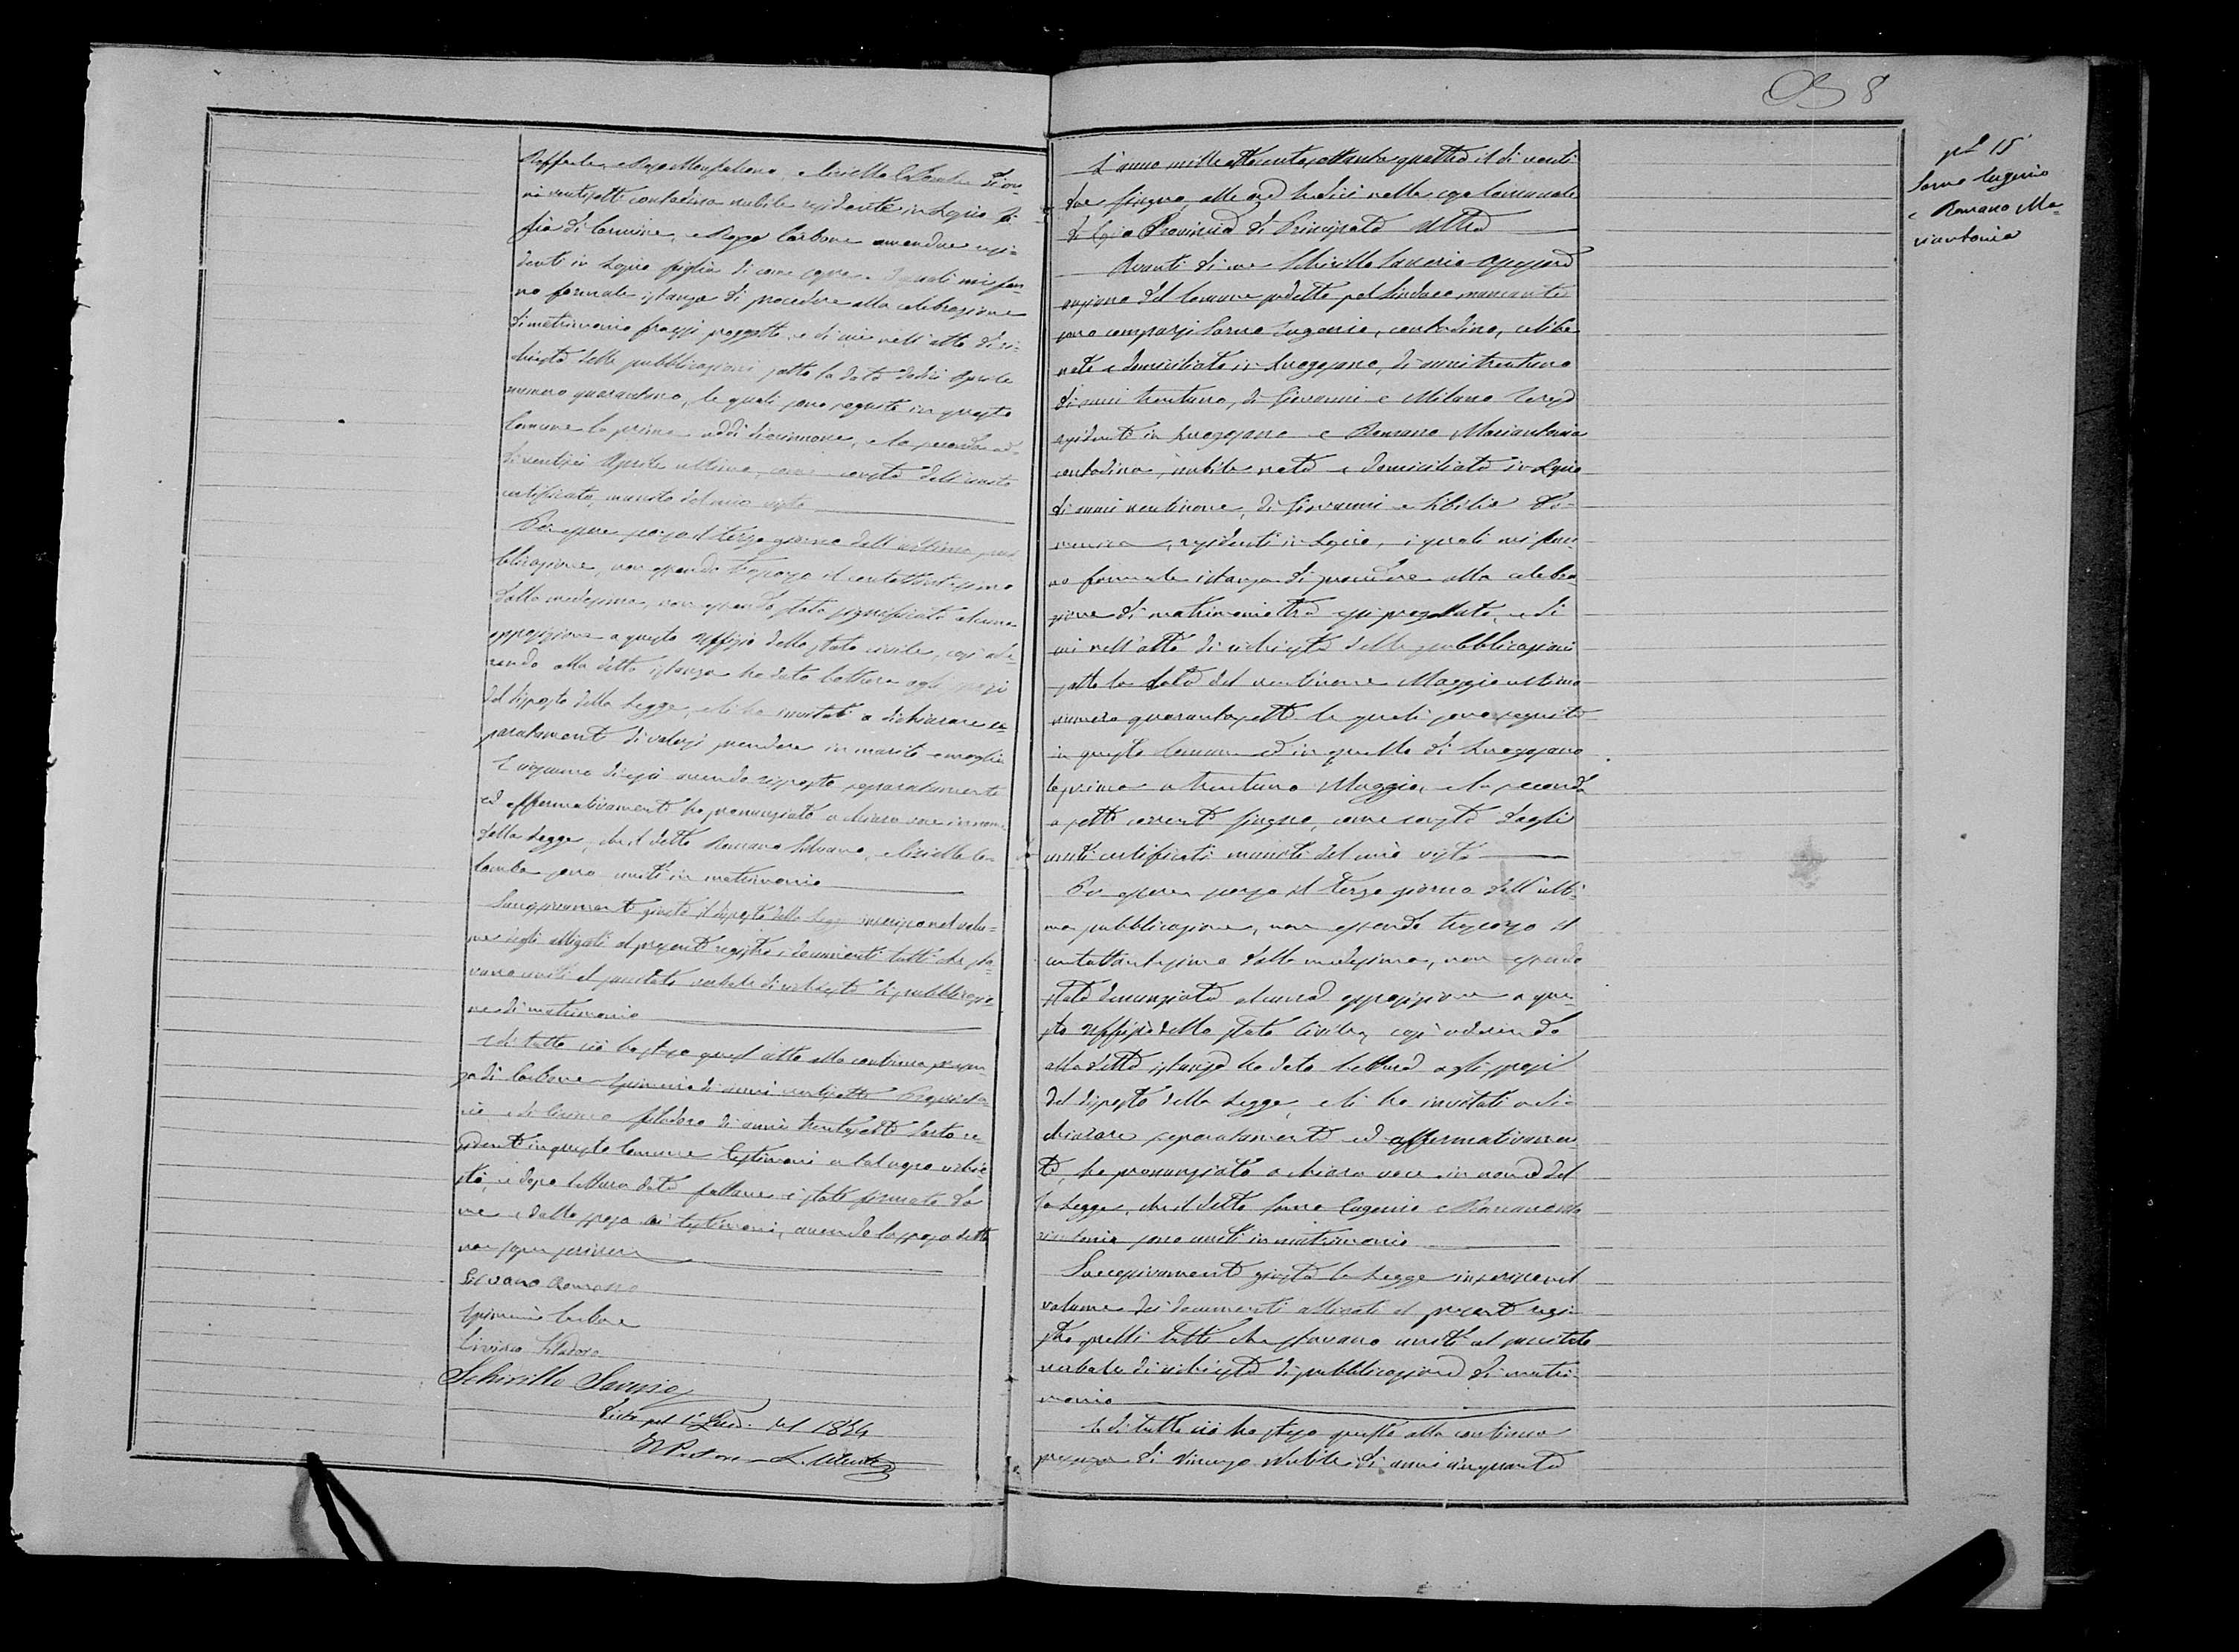 di anni
ni ventisett contadina nubile residente in Lapio
di Carmine, e Carbone amendue resi-
denti in Lapio figlia di come sopra i quali mi fan-
no formale istanza di procedere alla celebrazione
di matrimonio progettato, e di cui nell'atto di ri-
chiesta delle pubblicazioni sotto la data dodici Aprile
numero quarantuno, le quali sono seguite in questo
Comune la prima addì diciannove, e la seconda ad-
dì ventisei Aprile ultimo, come consta dall'unito
certificato, munito del mio visto
Per essere scorso il terzo giorno dall'ultima pub-
blicazione, non essendo trascorso il centottantesimo
dalla medesima, non essendo stata significata alcuna
opposizione a questo Uffizio dello stato civile, così ade-
rendo alla detta istanza ho dato lettura agli sposi
del disposto della Legge, e li ho invitati a dichiarare se-
paratamente di volersi prendere in marito e moglie
E ciascuno di essi avendo risposto separatamente
ed affermativamente ho pronunziato a chiara voce in nome
della Legge, che il detto Romano Silvano, e Ciriello Co-
lomba sono uniti in matrimonio
Successivament giusta il disposto della Legge inserisco nel volu-
me degli allegati al present registro i documenti tutti che sta-
vano uniti al succitato verbale di richiesta di pubblicazio-
ne di matrimonio
E di tutto ciò ho steso quest'atto alla continua presen-
za di Carbone di anni ventisette Proprieta-
rio e di Filadoro di anni trentasett Sarto re-
sidenti in questo Comune testimoni a tal uopo richie-
sti, e dopo lettura data fattane è stato firmato da
me e dallo sposo ai testimoni, avendo la sposa detto
non saper scrivere
Silvano Romano
Carbone
Filadoro
Schirillo Saverio
Visto pel 1° Quad. del 1884
Il Pretore

8
n° 15
Sarno Eugenio
e Romano Ma-
riantonia
L'anno mille ottocento ottantaquattro il dì venti
due Giugno, alle ore tredici nella casa Comunale
di Lapio Provincia di Principato Ultra
Avanti di me Schirillo Saverio Assessore
anziano del Comune sudetto pel Sindaco mancante
sono comparsi Sarno Eugenio, contadino, celibe
nato e domiciliato in Luogosano, di anni trentuno
di anni trentuno, di Giovanni e Milano Teresa
residenti in Luogosano e Romano Mariantonia
contadina, nubile, nata e domiciliata in Lapio
di anni ventinove, di Giovanni e Sibilia Do-
menica, residenti in Lapio, i quali mi fan-
no formale istanza di procedere alla celebra-
zione di matrimonio tra essi progettato, e di
cui nell'atto di richiesta delle pubblicazioni
sotto la data del ventinove Maggio ultimo
numero quarantasett le quali sono seguite
in questo Comune ed in quello di Luogosano
la prima a trentuno Maggio, e la seconda
a sette corrente Giugno, come consta dagli
uniti certificati muniti del mio visto
Per essere scorso il terzo giorno dall'ulti-
ma pubblicazione, non essendo trascorso il
centottantesimo dalla medesima, non essendo
stata denunziata alcuna opposizione a que-
sto Uffizio dello stato Civile, così aderendo
alla detta istanza ho dato lettura agli sposi
del disposto della Legge, e li ho invitati a di-
chiarare separatamente ed affermativamen
te, ho pronunziato a chiara voce in nome del
la Legge, che il detto Sarno Eugenio e Romano Ma
riantonia sono uniti in matrimonio
Successivament giusta la Legge inserisco nel
volume dei documenti allegati al present regi-
stro quelli tutti che stavano uniti al succitato
verbale di richiesta di pubblicazione di matri-
monio
E di tutto ciò ho steso questo alla continua
presenza di Vincenzo di anni cinquanta